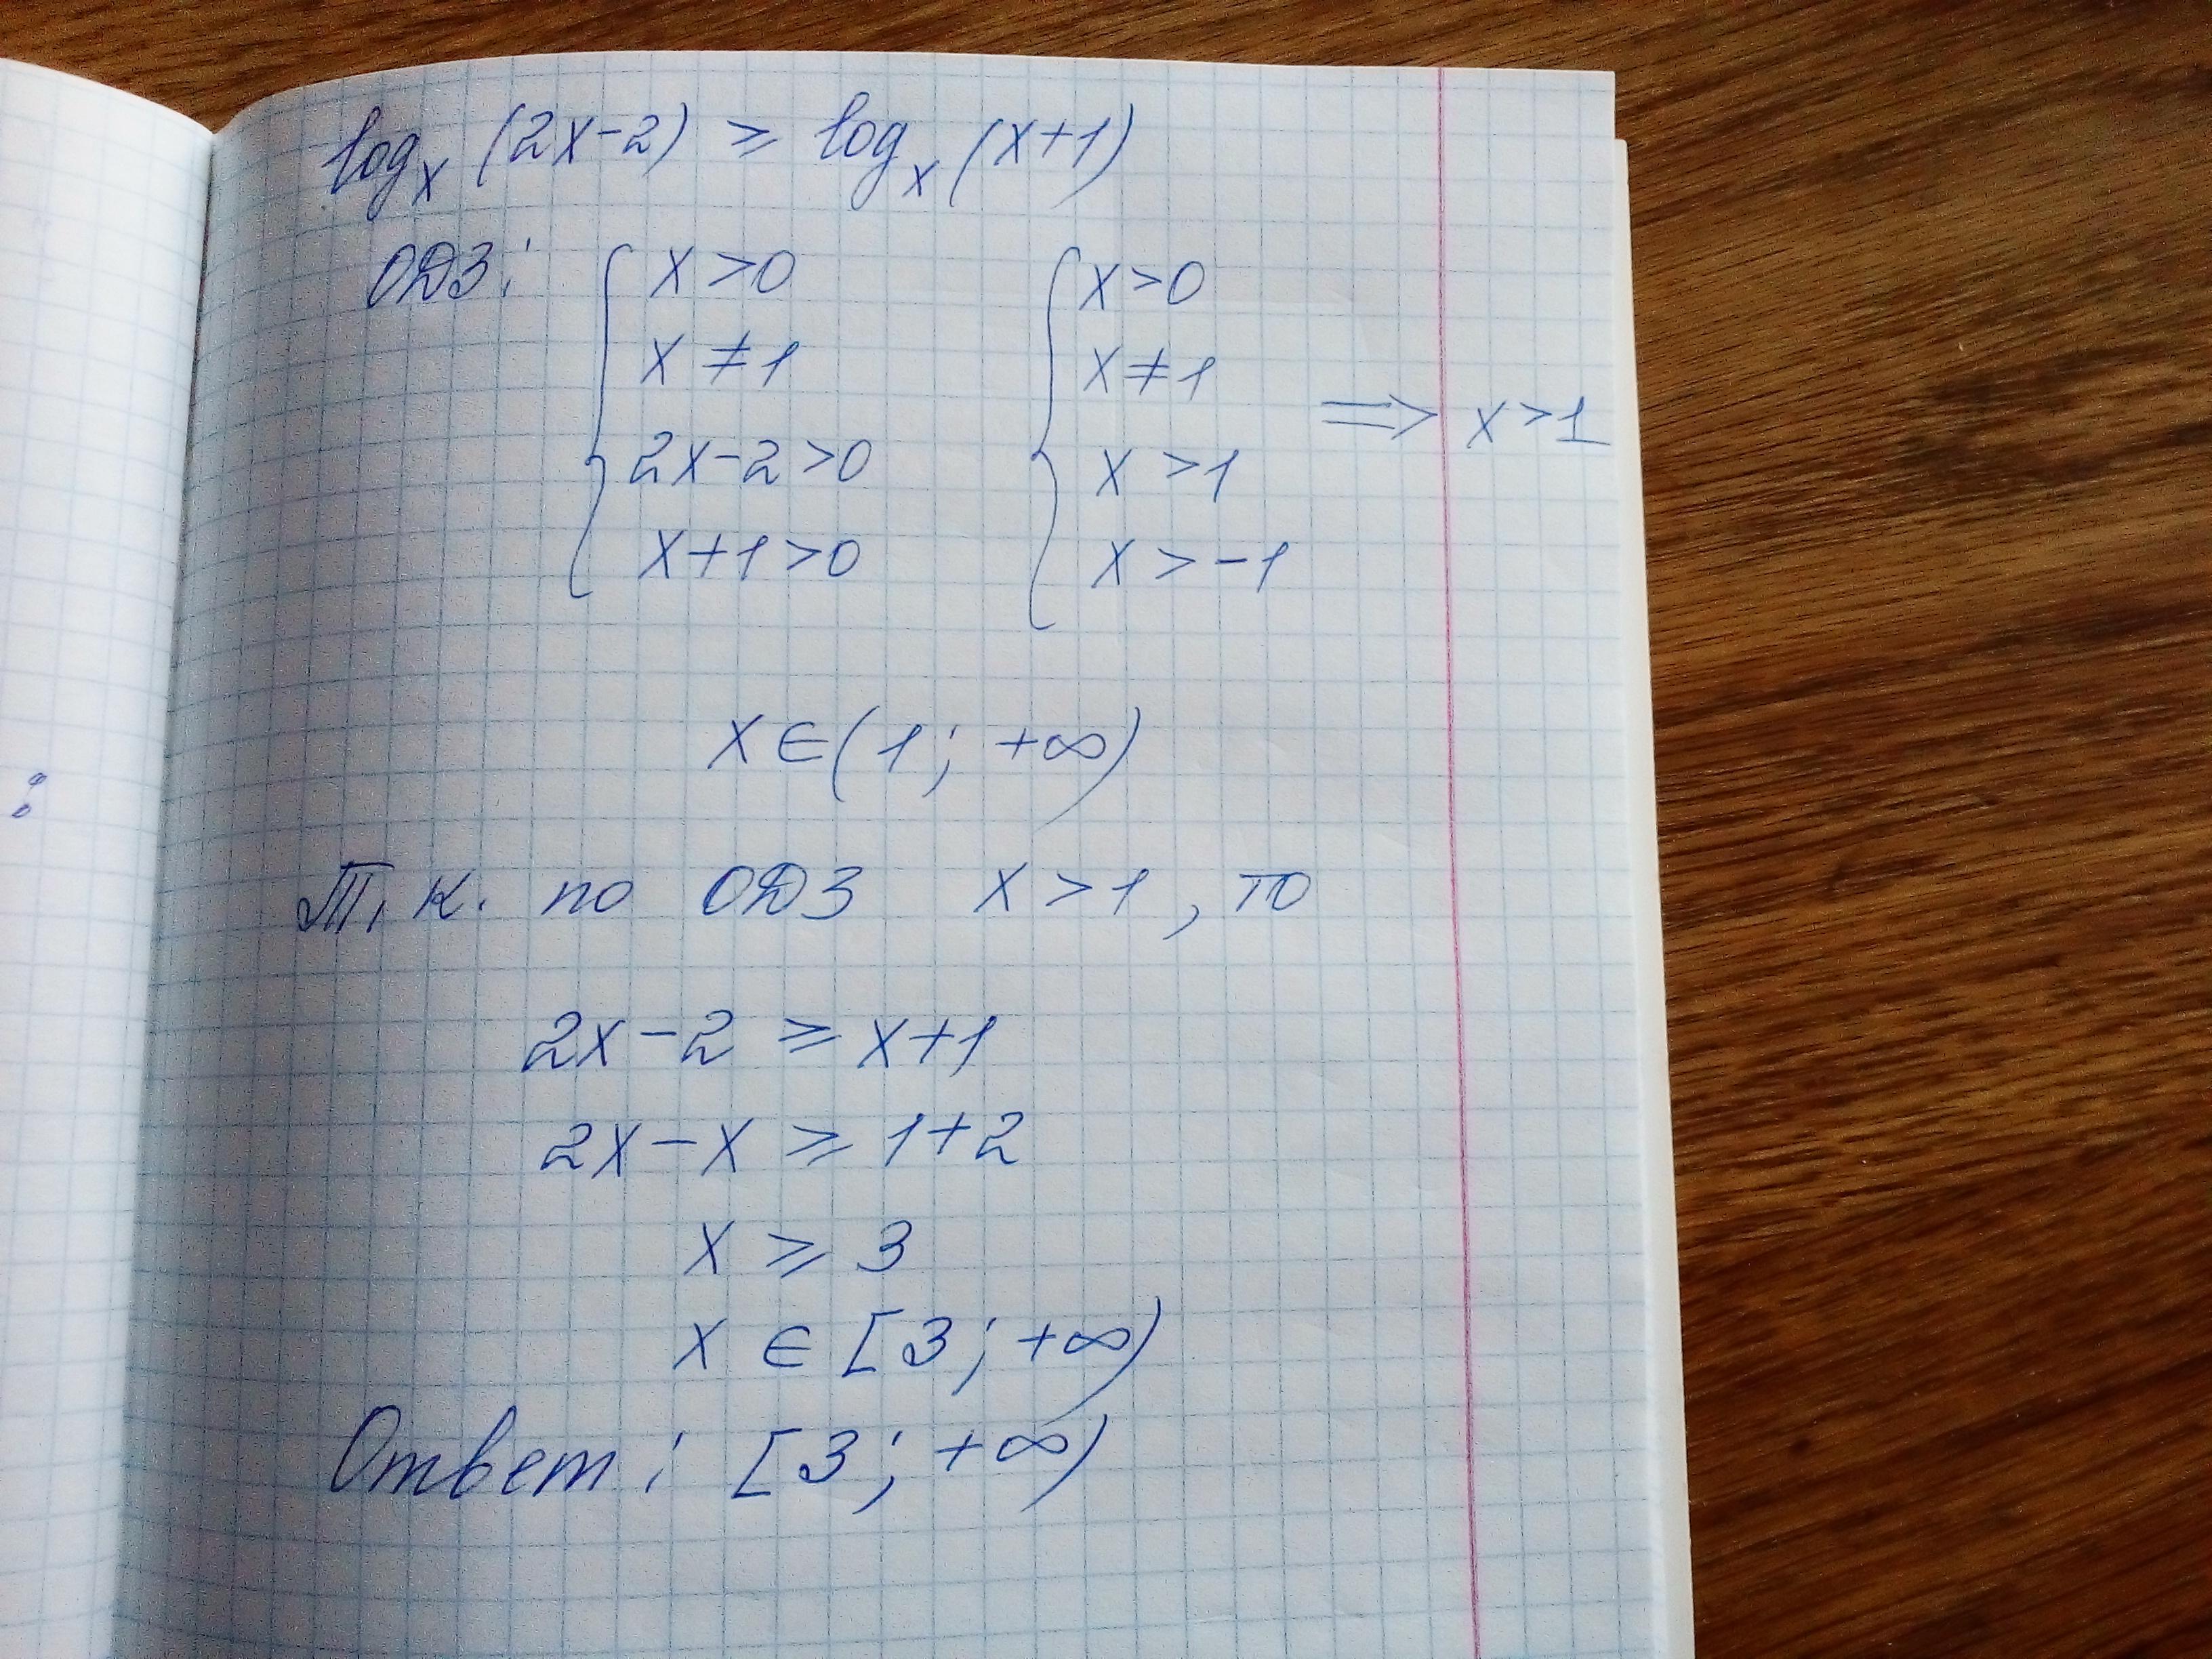 log_x (2x-2) ≥ log_x (x+1)
ОДЗ: { x>0 { x>0
x≠1 x≠1
2x-2>0 x>1 ⟹ x>1
x+1>0 x>-1
x∈(1; +∞)
Т.к. по ОДЗ x>1, то
2x-2 ≥ x+1
2x-x ≥ 1+2
x ≥ 3
x ∈ [3; +∞)
Ответ: [3; +∞)